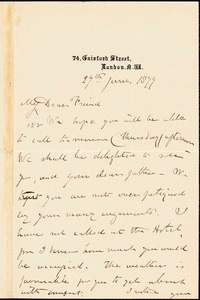 74, Gaisford Street,
London. N.W.
29th June, 1877
My Dear Friend
We hope you will be able
to call tomorrow (Thursday) afternoon
We shall be delighted to see
you, and your dear father - We
trust you are not over fatigued
by your many engagements. I
have not called at the Hotel,
for I know how much you would
be occupied. The weather is
favourable for you to get about
with comfort.